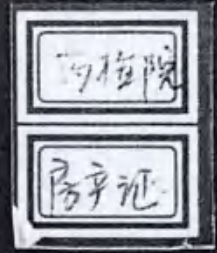 药检院
房产证